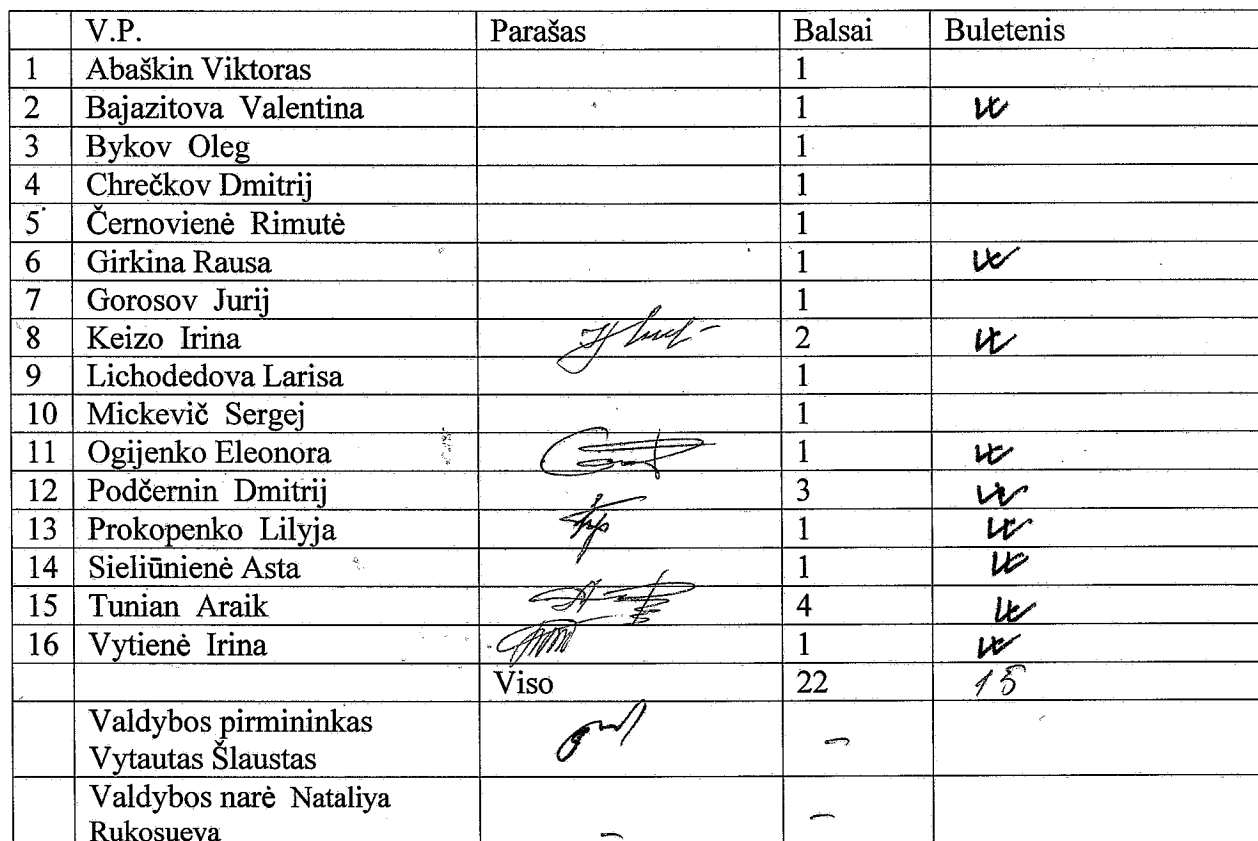 V.P. Parašas Balsai Buletenis
1 Abaškin Viktoras 1
2 Bajazitova Valentina 1
3 Bykov Oleg 1
4 Chrečkov Dmitrij 1
5 Černovienė Rimutė 1
6 Girkina Rausa 1
7 Gorosov Jurij 1
8 Keizo Irina 2
9 Lichodedova Larisa 1
10 Mickevič Sergej 1
11 Ogijenko Eleonora 1
12 Podčernin Dmitrij 3
13 Prokopenko Lilyja 1
14 Sieliūnienė Asta 1
15 Tunian Araik 4
16 Vytienė Irina 1
Viso 22 15
Valdybos pirmininkas
Vytautas Šlaustas –
Valdybos narė Nataliya
Rukosueva – –